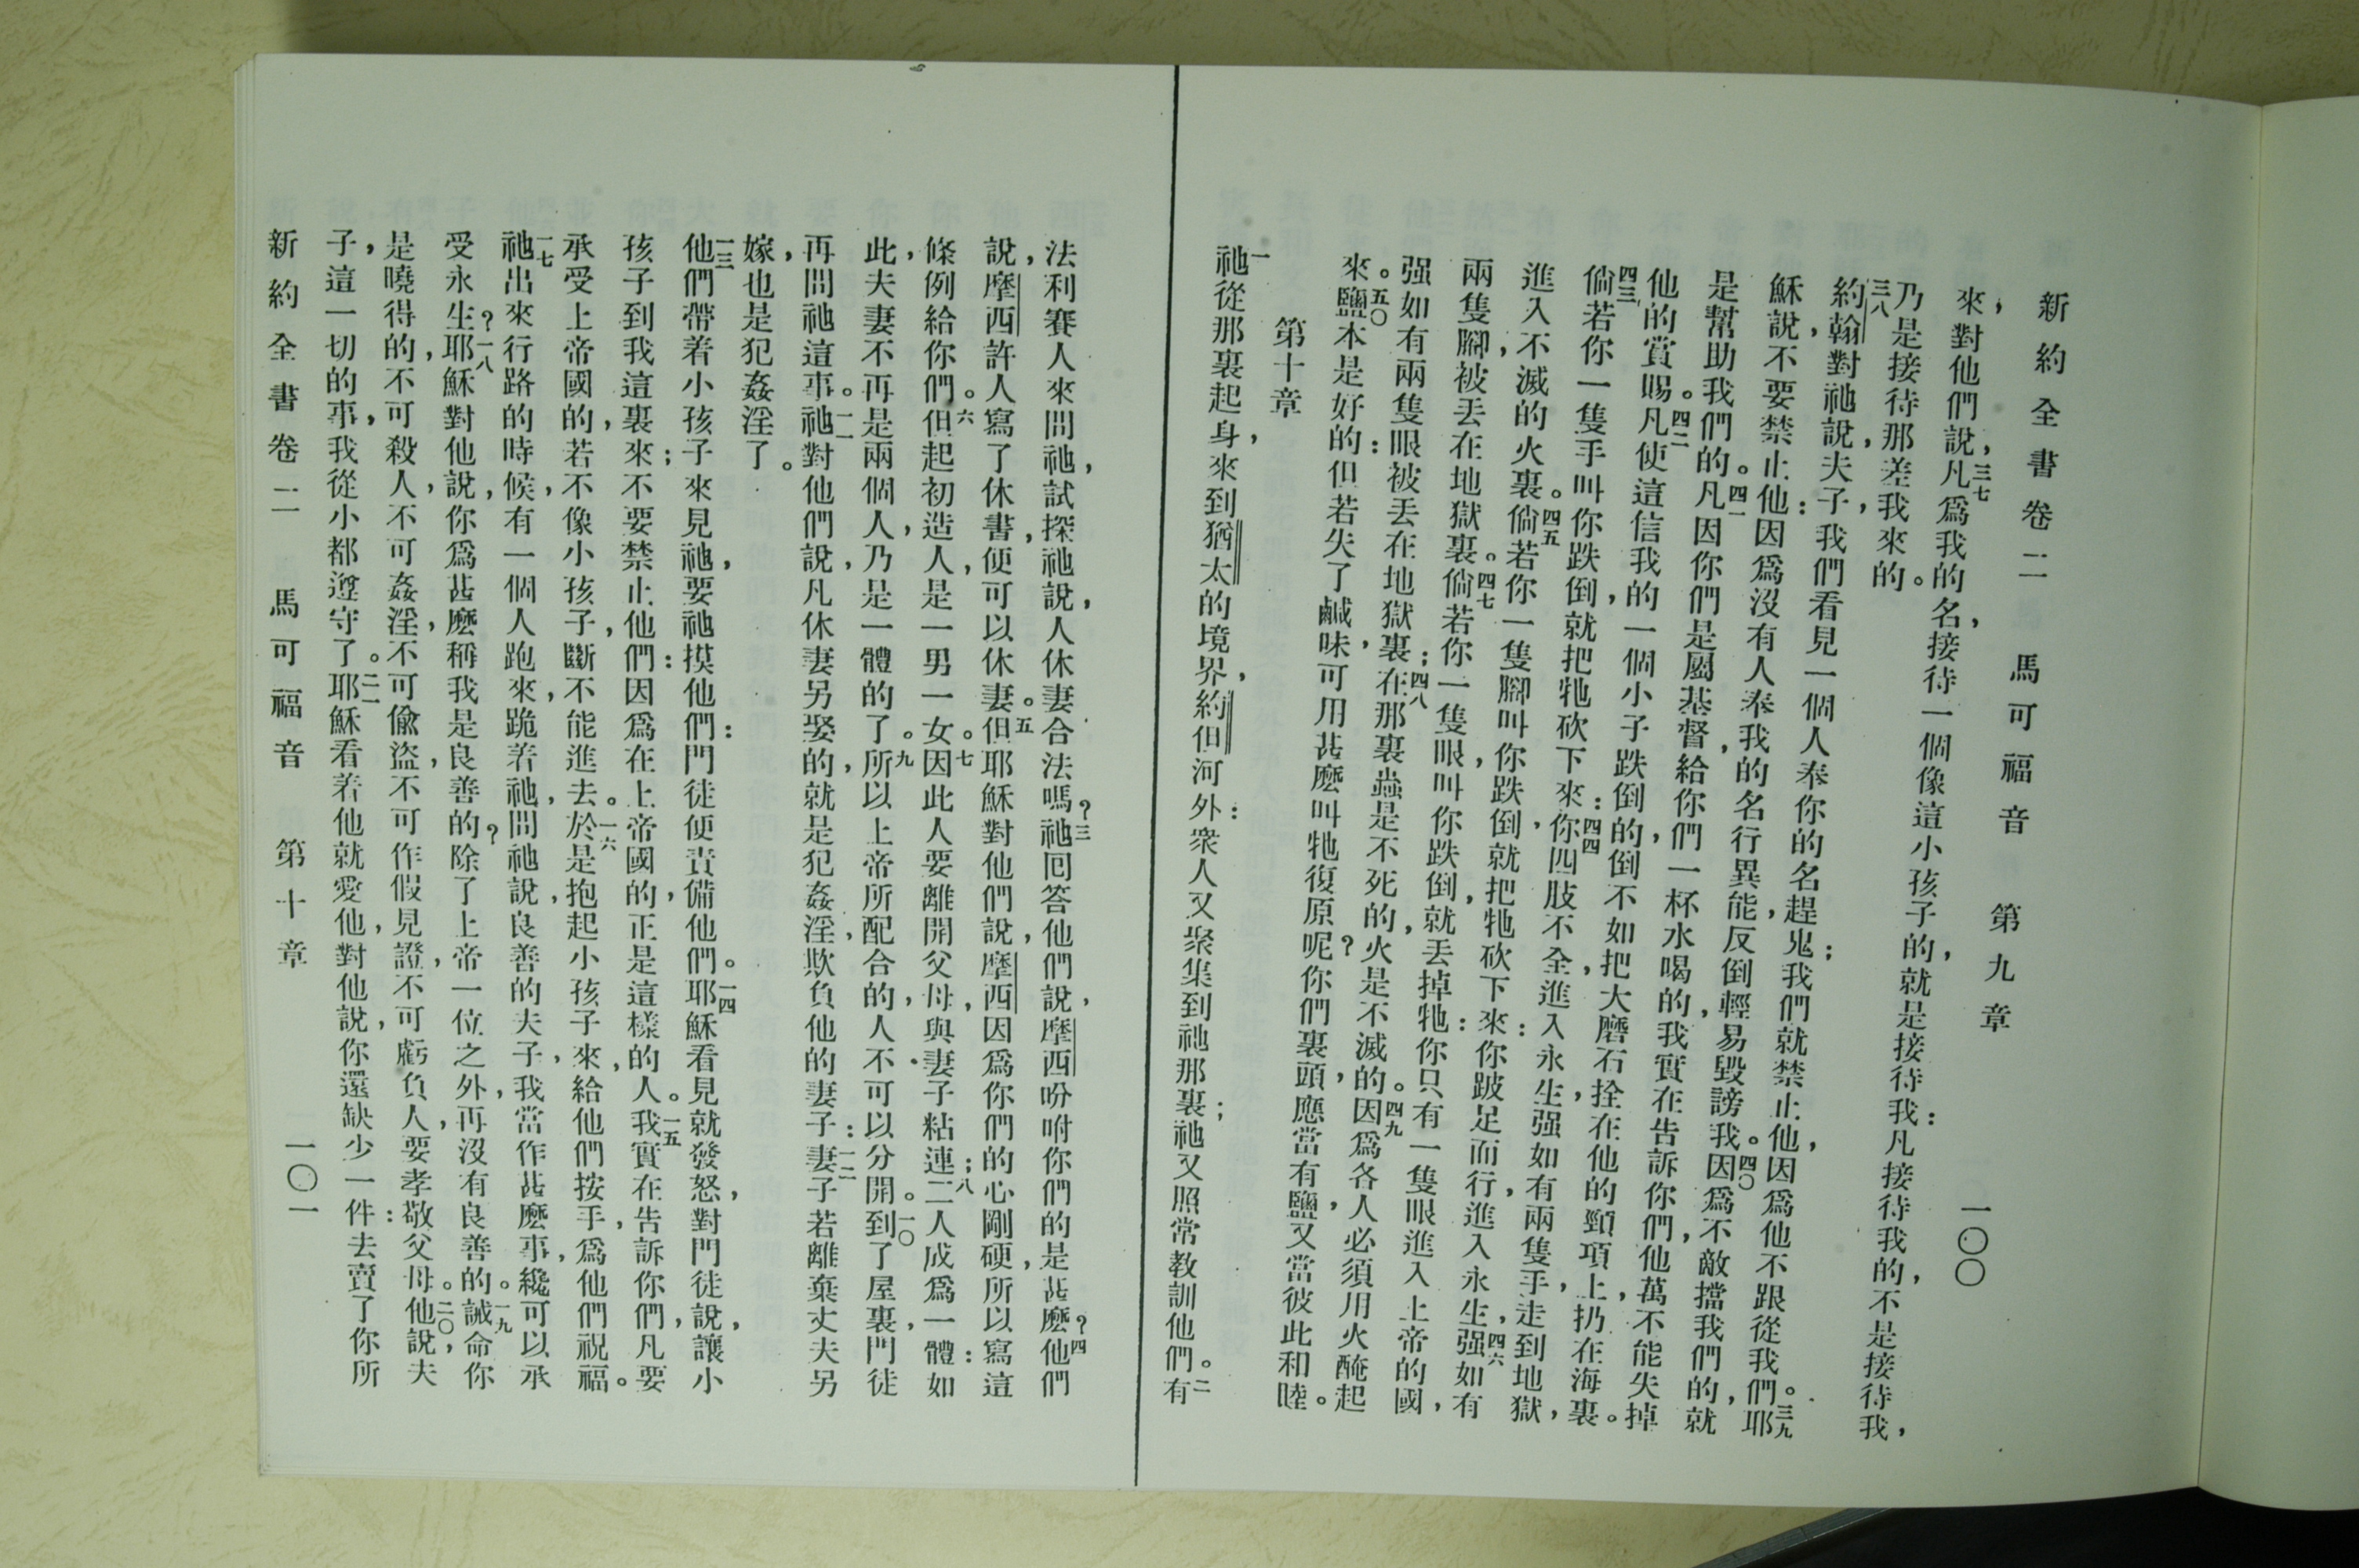 新約全書卷二　馬可福音　第九章　一〇〇
來，對他們說，三七凡爲我的名，接待一個像這小孩子的，就是接待我：凡接待我的，不是接待我，
乃是接待那差我來的。
三八約翰對祂說，夫子，我們看見一個人奉你的名趕鬼；我們就禁止他，因爲他不跟從我們。三九耶
穌說，不要禁止他：因爲沒有人奉我的名行異能，反倒輕易毀謗我。四〇因爲不敵擋我們的，就
是幫助我們的。四一凡因你們是屬基督，給你們一杯水喝的，我實在告訴你們，他萬不能失掉
他的賞賜。四二凡使這信我的一個小子跌倒的，倒不如把大磨石拴在他的頸項上，扔在海裏。
四三倘若你一隻手叫你跌倒，就把牠砍下來：四四你四肢不全，進入永生，强如有兩隻手，走到地獄，
進入不滅的火裏。四五倘若你一隻腳叫你跌倒，就把牠砍下來：你跛足而行，進入永生，四六强如有
兩隻腳，被丟在地獄裏。四七倘若你一隻眼，叫你跌倒，就丟掉牠：你只有一隻眼進入上帝的國，
强如有兩隻眼被丟在地獄裏；四八在那裏蟲是不死的，火是不滅的。四九因爲各人必須用火醃起
來。五〇鹽本是好的：但若失了鹹味，可用甚麼叫牠復原呢？你們裏頭，應當有鹽，又當彼此和睦。
第十章
一祂從那裏起身，來到猶太的境界，約但河外：衆人又聚集到祂那裏；祂又照常教訓他們。二有
法利賽人來問祂，試探祂說，人休妻合法嗎？三祂囘答他們說，摩西吩咐你們的是甚麼？四他們
說，摩西許人寫了休書，便可以休妻。五但耶穌對他們說，摩西因爲你們的心剛硬，所以寫這
條例給你們。六但起初造人，是一男一女。七因此人要離開父母，與妻子粘連；八二人成爲一體：如
此，夫妻不再是兩個人，乃是一體的了。九所以上帝所配合的，人不可以分開。一〇到了屋裏，門徒
再問祂這事。一一祂對他們說，凡休妻另娶的，就是犯姦淫，欺負他的妻子：一二妻子若離棄丈夫另
嫁，也是犯姦淫了。
一三他們帶着小孩子來見祂，要祂摸他們：門徒便責備他們。一四耶穌看見就發怒，對門徒說，讓小
孩子到我這裏來；不要禁止他們：因爲在上帝國的，正是這樣的人。一五我實在告訴你們，凡要
承受上帝國的，若不像小孩子，斷不能進去。一六於是抱起小孩子來，給他們按手，爲他們祝福。
一七祂出來行路的時候，有一個人跑來，跪着祂，問祂說，良善的夫子，我當作甚麼事，纔可以承
受永生？一八耶穌對他說，你爲甚麼稱我是良善的？除了上帝一位之外，再沒有良善的。一九誡命你
是曉得的，不可殺人，不可姦淫，不可偸盜，不可作假見證，不可虧負人，要孝敬父母。二〇他說，夫
子，這一切的事，我從小都遵守了。二一耶穌看着他就愛他，對他說，你還缺少一件：去賣了你所
新約全書卷二　馬可福音　第十章　一〇一